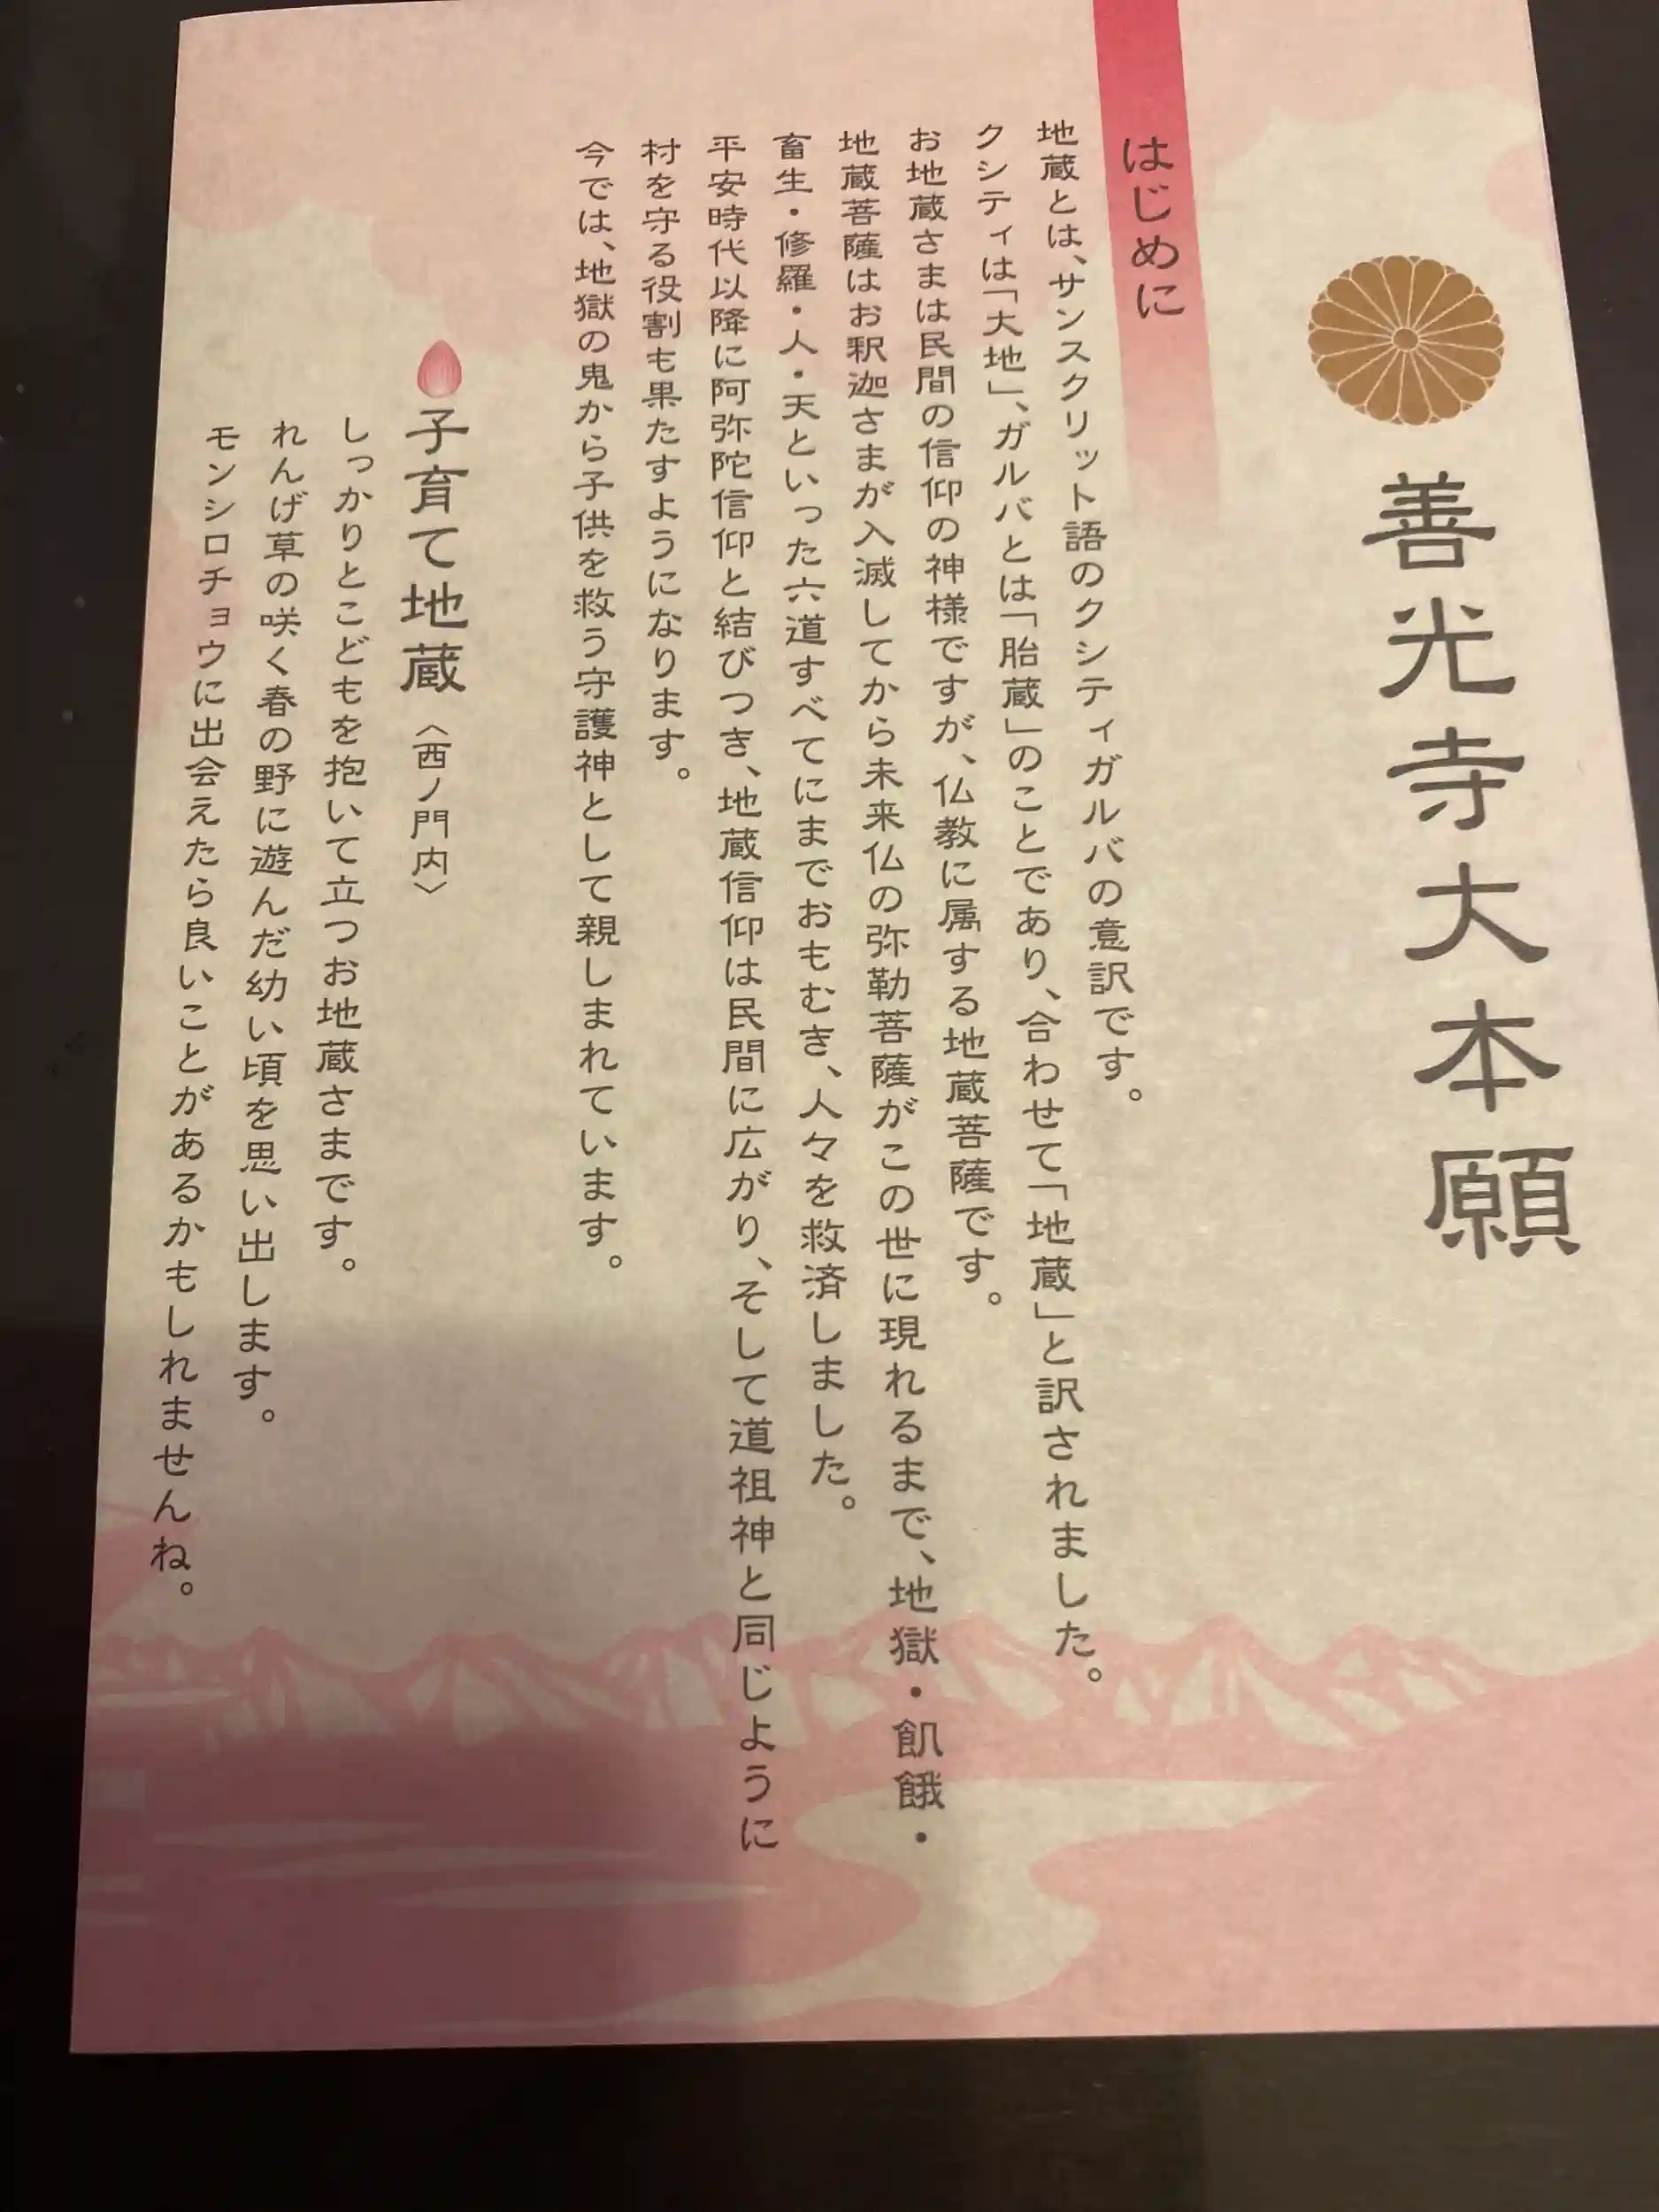 善光寺大本願
はじめに
地蔵とは、サンスクリット語のクシティガルバの意訳です。
クシティは「大地」、ガルバとは「胎蔵」のことであり、合わせて「地蔵」と訳されました。
お地蔵さまは民間の信仰の神様ですが、仏教に属する地蔵菩薩です。
地蔵菩薩はお釈迦さまが入滅してから未来仏の弥勒菩薩がこの世に現れるまで、地獄・飢餓・
畜生・修羅・人・天といった六道すべてにまでおもむき、人々を救済しました。
平安時代以降に阿弥陀信仰と結びつき、地蔵信仰は民間に広がり、そして道祖神と同じように
村を守る役割も果たすようになります。
今では、地獄の鬼から子供を救う守護神として親しまれています。
子育て地蔵〈西ノ門内〉
しっかりとこどもを抱いて立つお地蔵さまです。
れんげ草の咲く春の野に遊んだ幼い頃を思い出します。
モンシロチョウに出会えたら良いことがあるかもしれませんね。